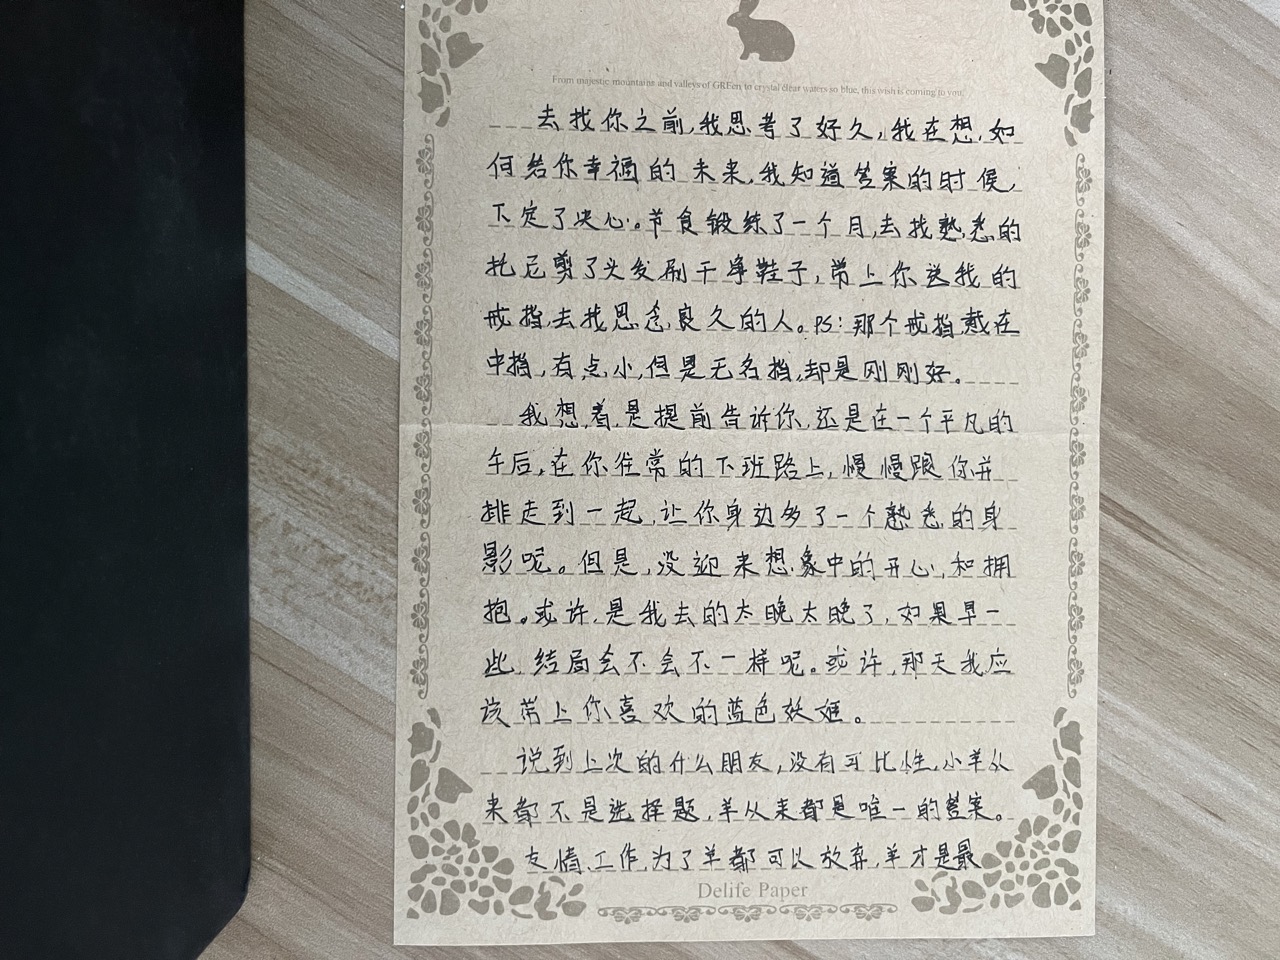 From majestic mountains and valleys of GREen to crystal clear waters so blue, this wish is coming to you.
去找你之前,我思考了好久,我在想,如
何给你幸福的未来,我知道答案的时候,
下定了决心。节食锻练了一个月,去找熟悉的
托尼剪了头发刷干净鞋子,带上你送我的
戒指,去找思念良久的人。PS:那个戒指戴在
中指,有点小,但是无名指,却是刚刚好。
我想着,是提前告诉你,还是在一个平凡的
午后,在你往常的下班路上,慢慢跟你并
排走到一起,让你身边多了一个熟悉的身
影呢。但是,没迎来想象中的开心,和拥
抱。或许,是我去的太晚太晚了,如果早一
些,结局会不会不一样呢。或许,那天我应
该带上你喜欢的蓝色妖姬。
说到上次的什么朋友,没有可比性,小羊从
来都不是选择题,羊从来都是唯一的答案。
友情,工作,为了羊都可以放弃,羊才是最
Delife Paper